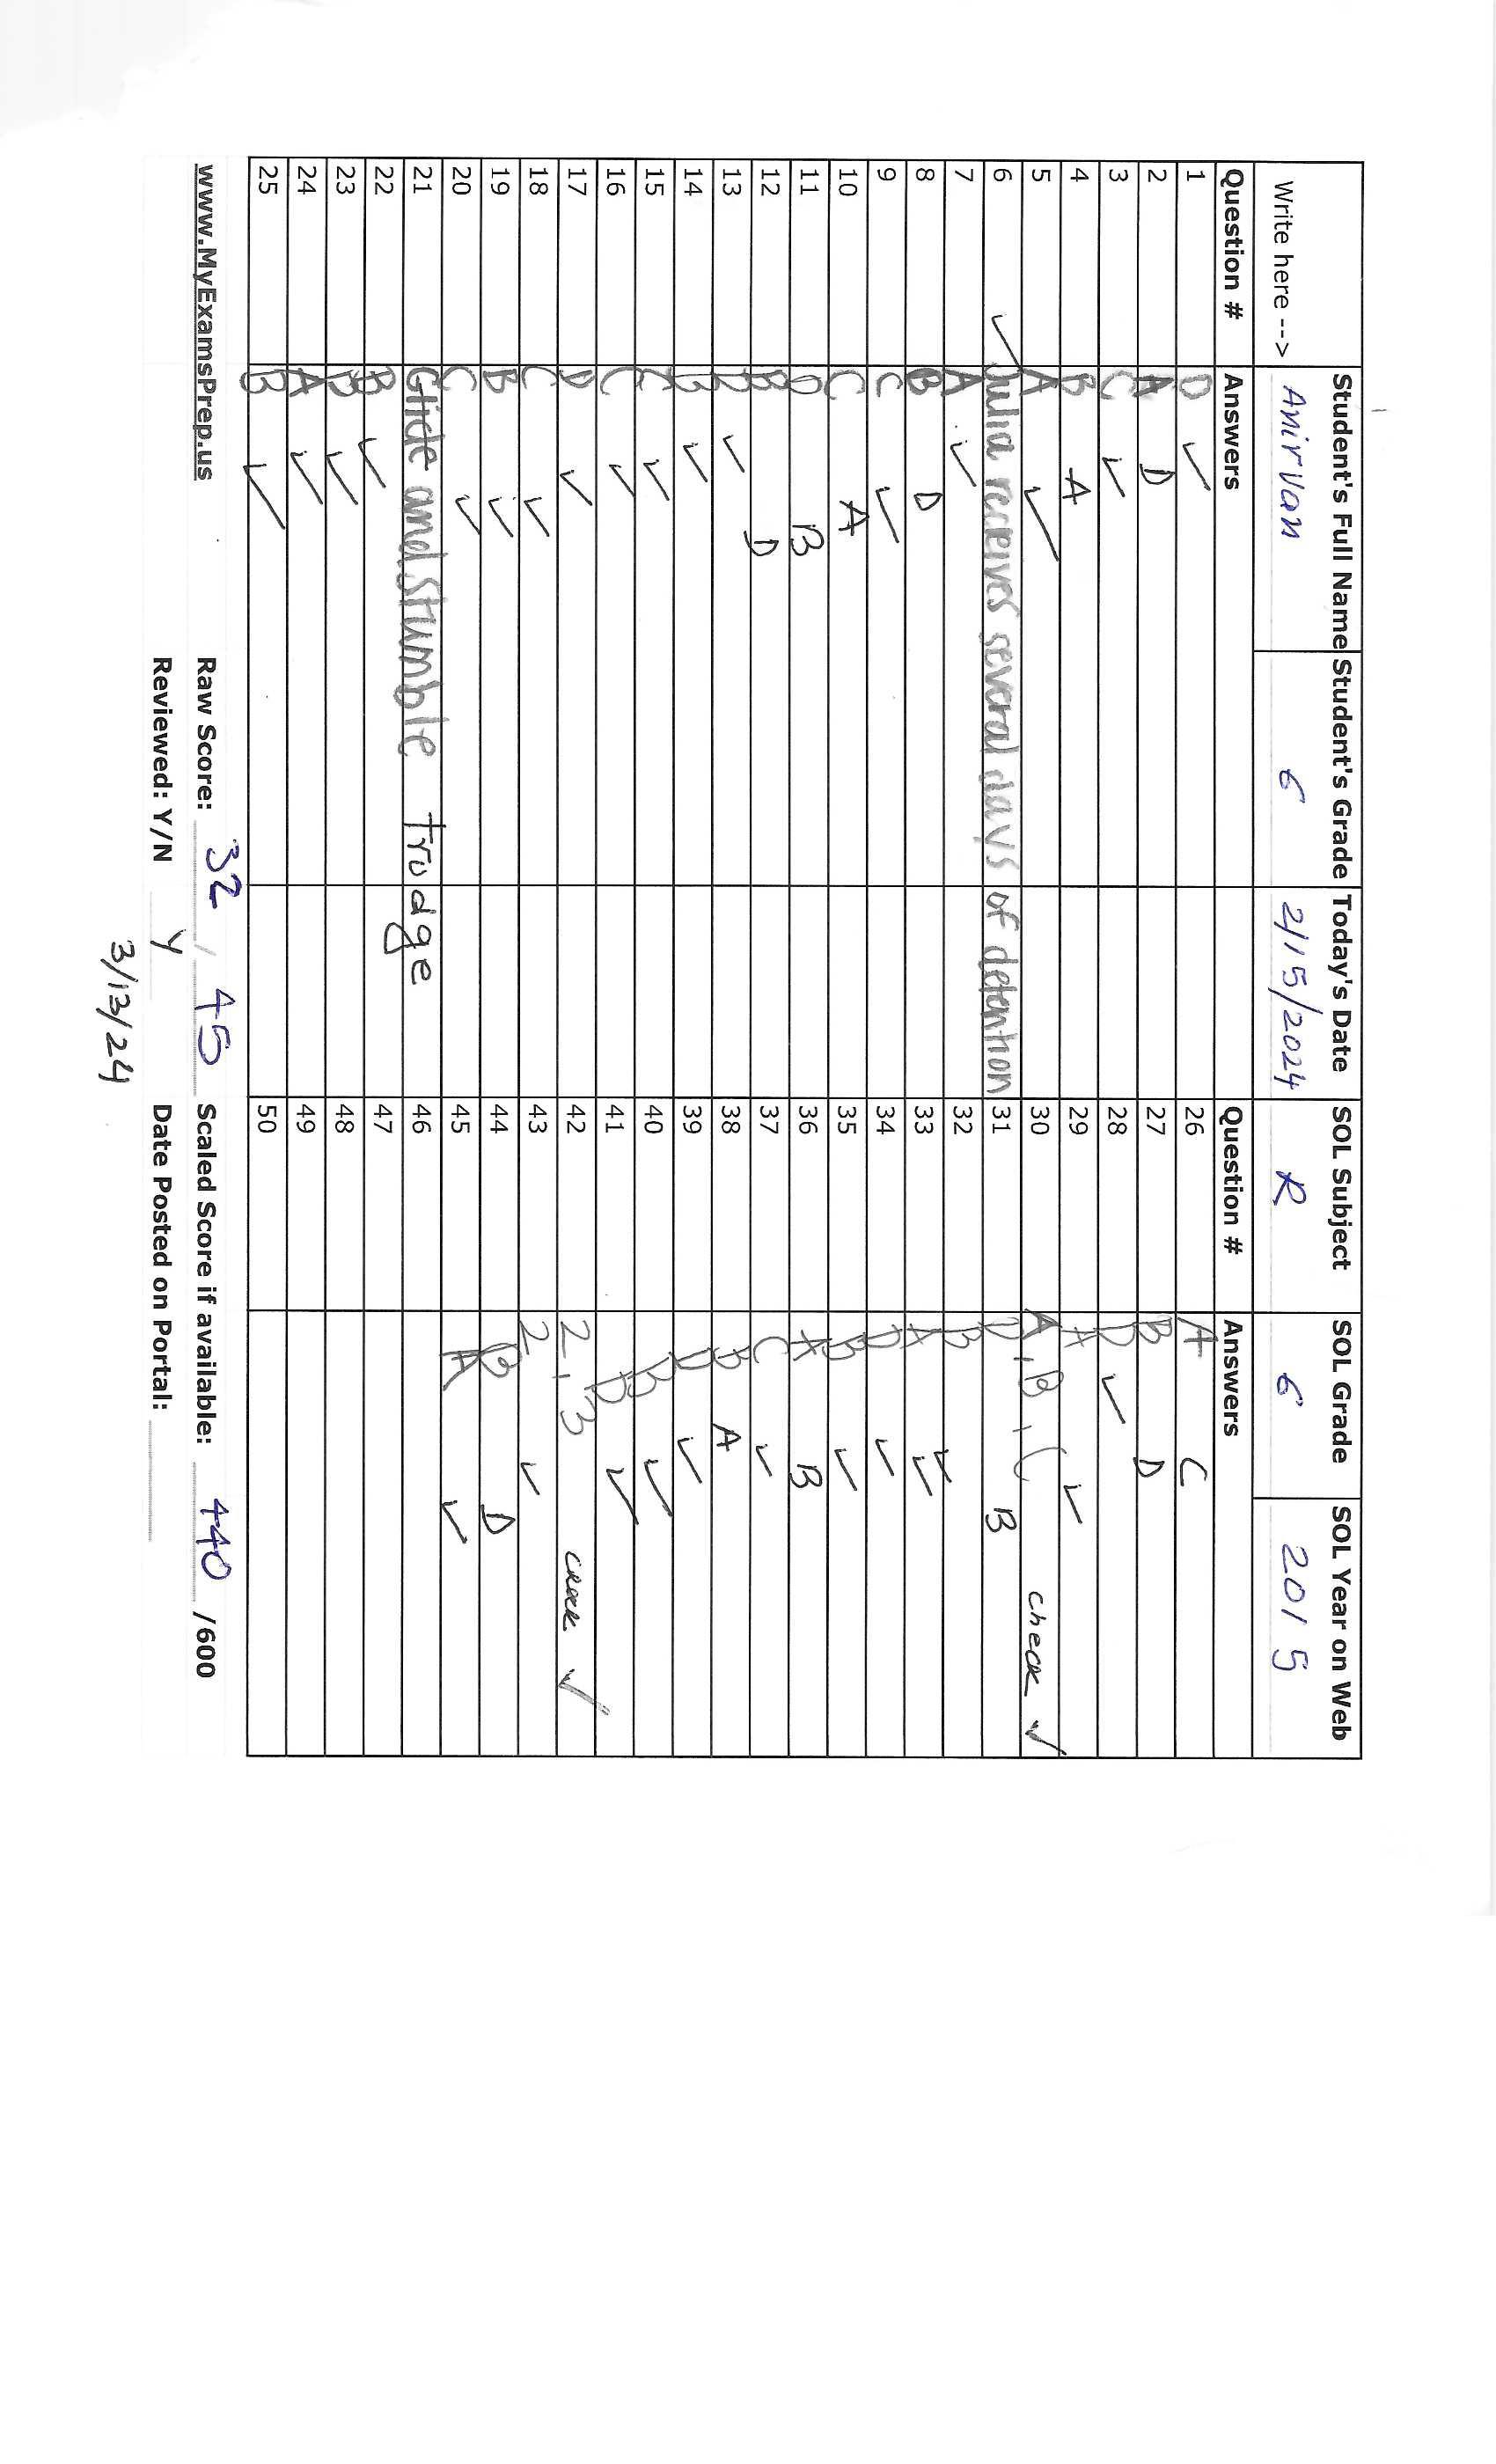 Student's Full Name Student's Grade Today's Date SOL Subject SOL Grade SOL Year on Web
Write here --> Anirvan 6 2/15/2024 R 6 2015
Question # Answers Question # Answers
1 D ✓ 26 A C
2 A D 27 B D
3 C ✓ 28 D ✓
4 B A 29 A ✓
5 A ✓ 30 A, B, C check ✓
6 ✓ Julia receives several days of detention 31 D B
7 A ✓ 32 B ✓
8 B D 33 A ✓
9 C ✓ 34 D ✓
10 C A 35 B ✓
11 D B 36 A B
12 B D 37 C ✓
13 D ✓ 38 B A
14 B ✓ 39 D ✓
15 C ✓ 40 B ✓
16 C ✓ 41 D ✓
17 D ✓ 42 2,3 check ✓
18 C ✓ 43 2 ✓
19 B ✓ 44 B D
20 C ✓ 45 A ✓
21 Glide and Stumble trudge 46
22 B ✓ 47
23 D ✓ 48
24 A ✓ 49
25 B ✓ 50
www.MyExamsPrep.us Raw Score: 32 / 45 Scaled Score if available: 440 /600
Reviewed: Y/N Y Date Posted on Portal:
3/13/24